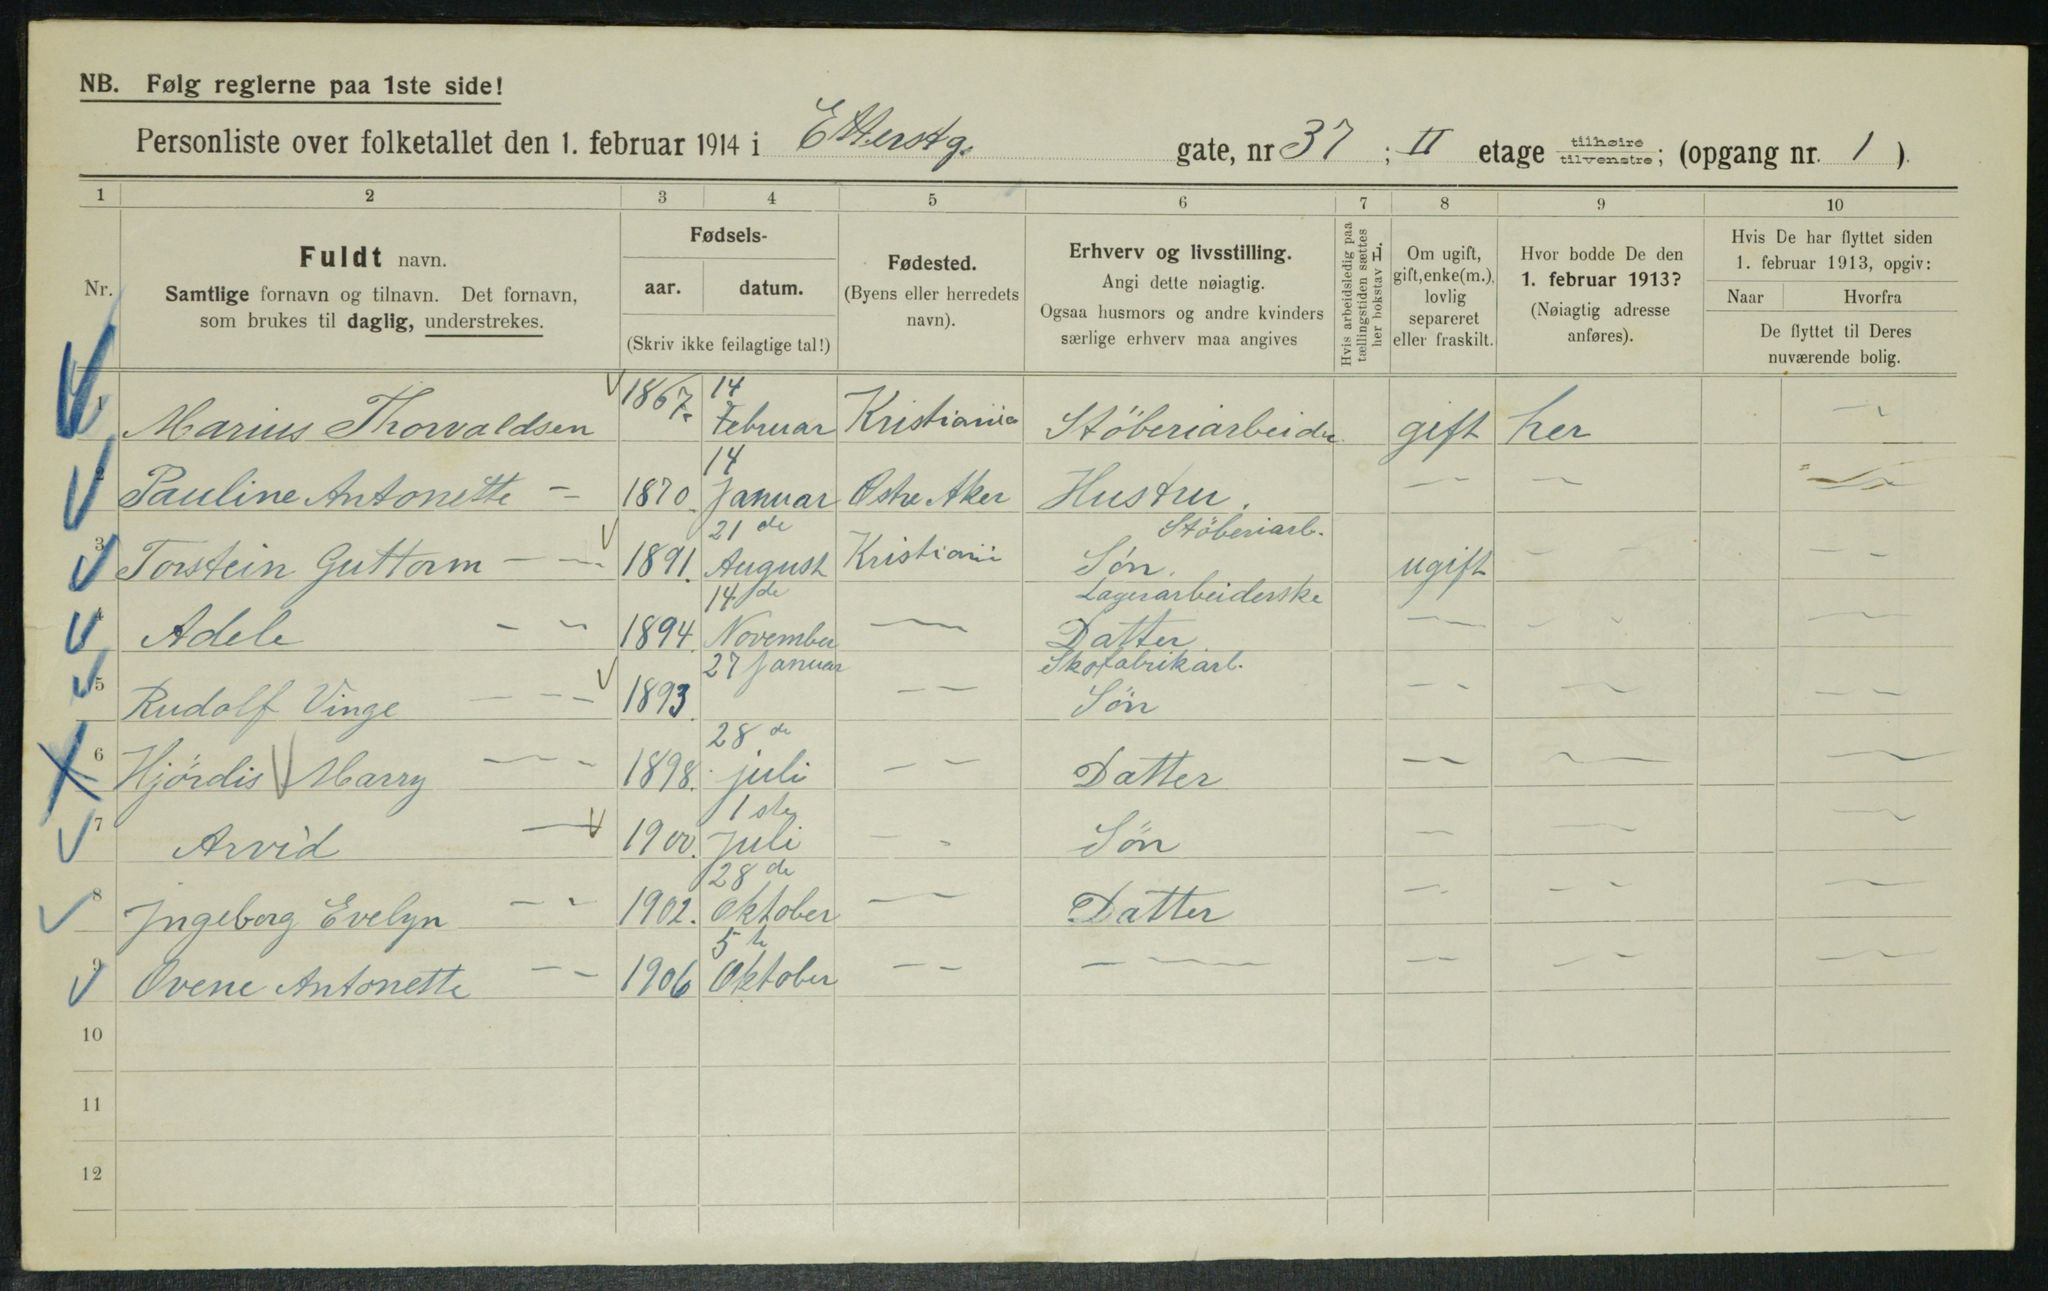 NB. Følg reglerne paa 1ste side!
Personliste over folketallet den 1. februar 1914 i Etterstg. gate, nr 37; II etage tilhøire tilvenstre; (opgang nr. 1).
1 2 3 4 5 6 7 8 9 10
Nr.
Fuldt navn.
Samtlige fornavn og tilnavn. Det fornavn,
som brukes til daglig, understrekes.
Fødsels-
aar. datum.
(Skriv ikke feilagtige tal!)
Fødested.
(Byens eller herredets
navn).
Erhverv og livsstilling.
Angi dette nøiagtig.
Ogsaa husmors og andre kvinders
særlige erhverv maa angives
Hvis arbeidsledig paa
tællingstiden sættes
her bokstav L.
Om ugift,
gift, enke(m.),
lovlig
separeret
eller fraskilt.
Hvor bodde De den
1. februar 1913?
(Nøiagtig adresse
anføres).
Hvis De har flyttet siden
1. februar 1913, opgiv:
Naar Hvorfra
De flyttet til Deres
nuværende bolig.
1 Marius Thorvaldsen 1867. 14 Februar Kristiania Stöberiarbeider gift her — —
2 Pauline Antonette — — 1870. 14 Januar Østre Aker Hustru. — — — — — —
3 Torstein Guttorm — — 1891. 21 de August Kristiania Stöberiarb. Søn. ugift — — — —
4 Adele — — 1894. 14 de November — — Lagerarbeiderske Datter — — — — — —
5 Rudolf Vinge — — — 1893 27 Januar — — Skofabrikarb. Sön — — — — — —
6 Hjördis Marry — — — 1898. 28 de juli — — Datter — — — — — —
7 Arvid — — 1900. 1 ste Juli — — Sön — — — — — —
8 Ingeborg Evelyn — — 1902. 28 de Oktober — — Datter — — — — — —
9 Ovene Antonette — — 1906 5 te Oktober — — — — — — — — — —
10
11
12